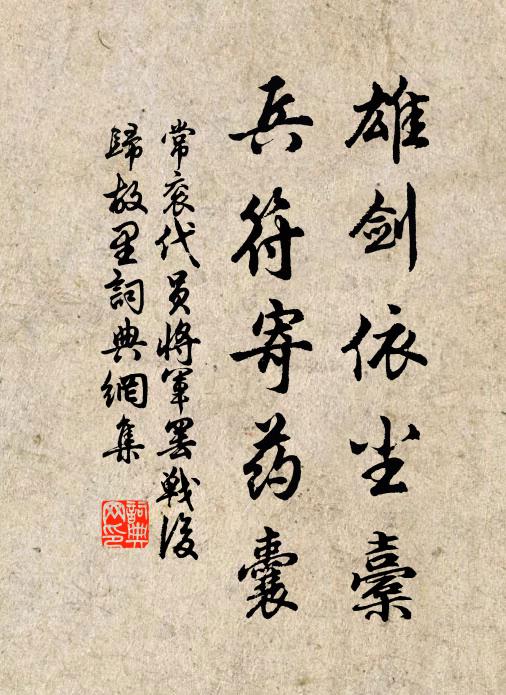 雄剑依尘橐
兵符寄药囊
常衮代员将军罢战后
归故里词典网集
词典网印